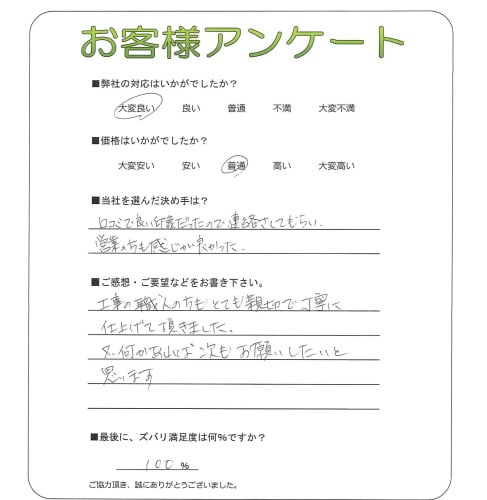 お客様アンケート
■弊社の対応はいかがでしたか？
大変良い 良い 普通 不満 大変不満
■価格はいかがでしたか？
大変安い 安い 普通 高い 大変高い
■当社を選んだ決め手は？
口コミで良い印象だったので連絡さしてもらい、
営業の方も感じが良かった。
■ご感想・ご要望などをお書き下さい。
工事の職人の方も とても親切で丁寧に
仕上げて頂きました。
又、何か有れば次もお願いしたいと
思います
■最後に、ズバリ満足度は何％ですか？
100 %
ご協力頂き、誠にありがとうございました。